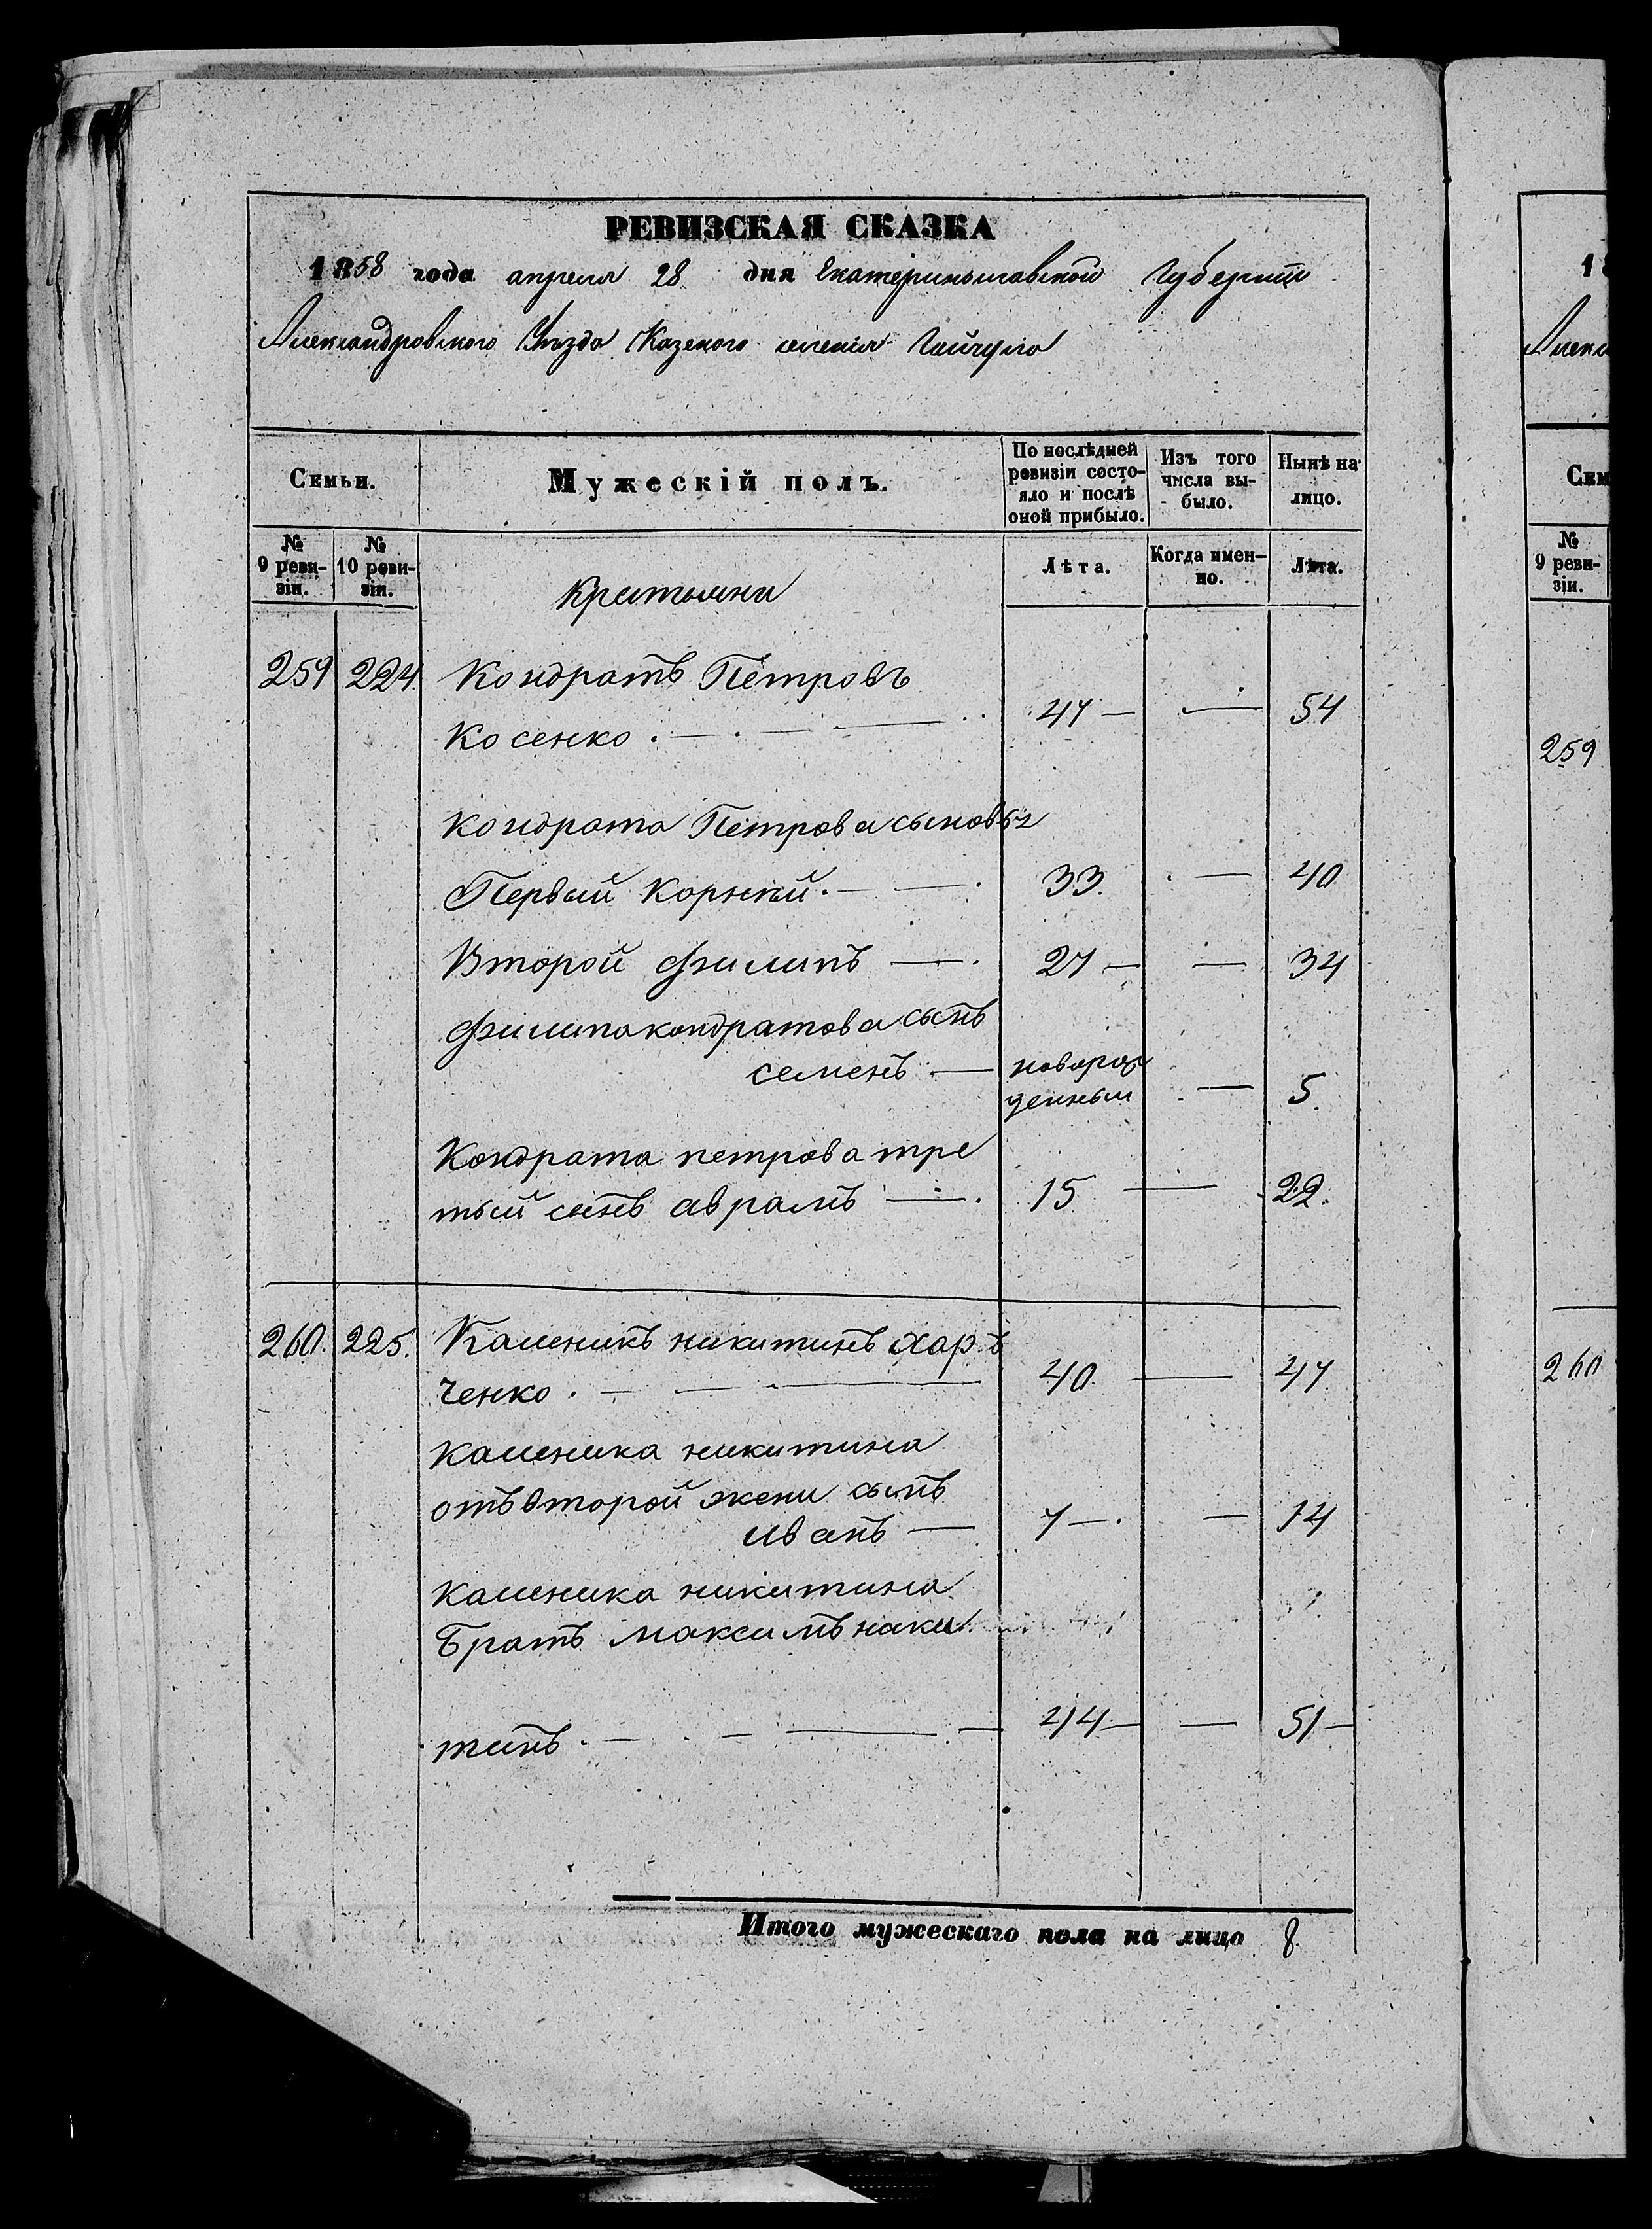 РЕВИЗСКАЯ СКАЗКА
1858 года апреля 28 дня Екатеринославской Губернии
Александровского Уезда Казеного селения Гайчула
Семьи.
Мужескій полъ.
По послѣдней ревизіи состояло и послѣ оной прибыло.
Изъ того числа выбыло.
Нынѣ на лицо.
№ 9 ревизіи.
№ 10 ревизіи.
Лѣта.
Когда именно.
Лѣта.
Крестьяни
259 224. Кондратъ Петровъ
Косенко 47 — — 54
Кондрата Петрова сыновья
Первый Корнѣй 33. — 40
Второй Филипъ — 27 — — 34
Филипа кондратова сынъ
семенъ — новорож
денный — 5.
Кондрата петрова тре
тый сынъ аврамъ — 15 — 22.
260. 225. Каленикъ никитинъ харъ
ченко 40. — 47
каленика никитина
отъ второй жени сынъ
иванъ — 7 — — 14
каленика никитина
Братъ максимъ ники
тинъ — 44 — — 51 —
Итого мужескаго пола на лицо 8.
1
Алекс
Сем
№ 9 ревизіи.
259
260